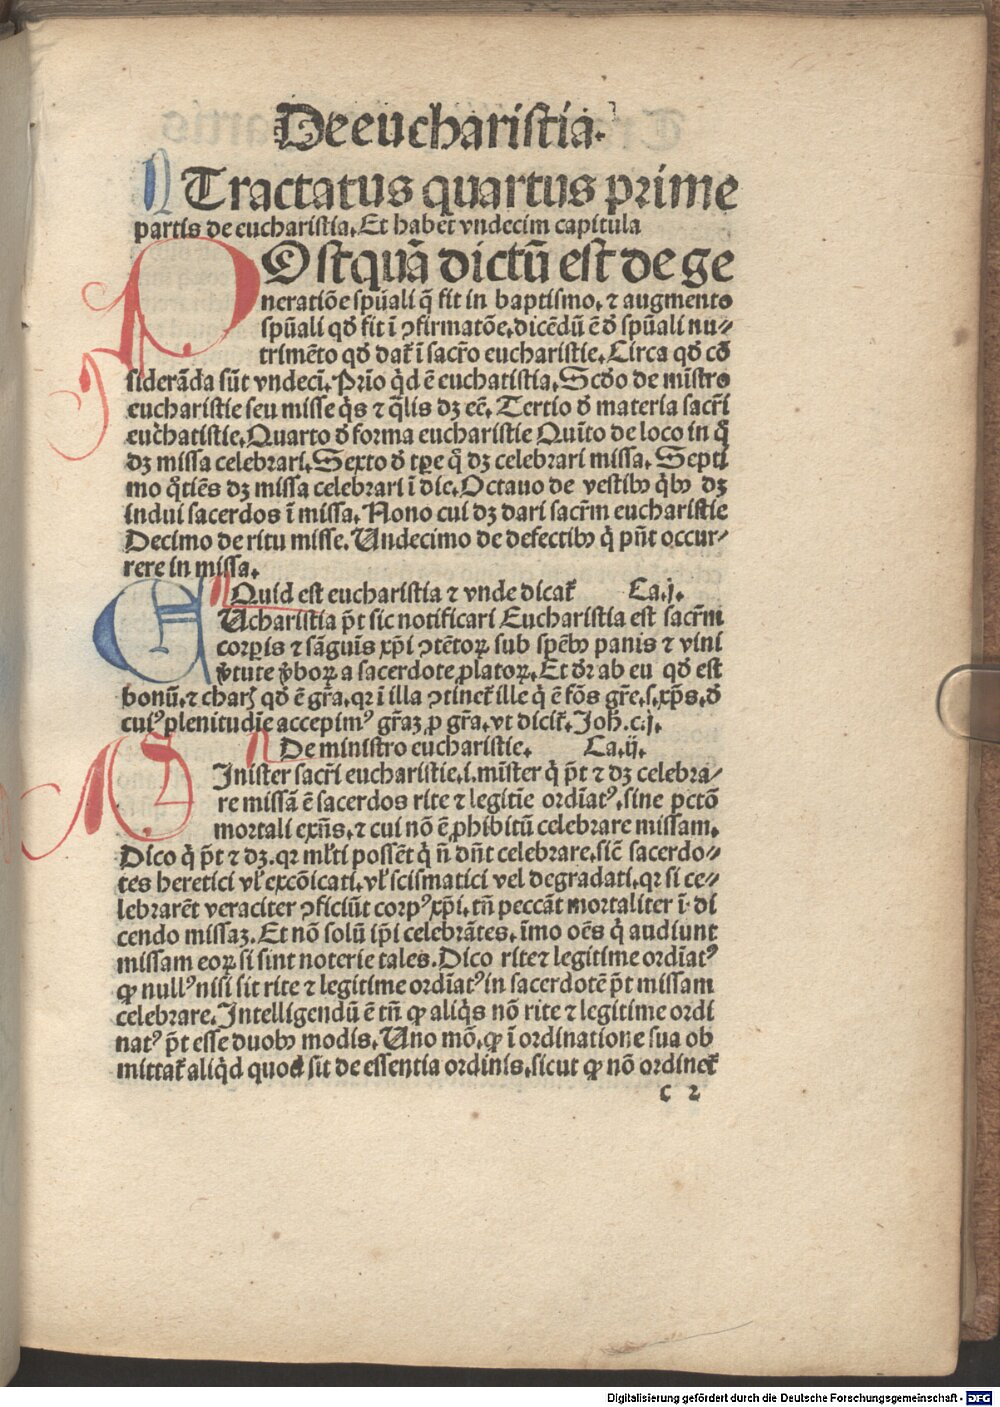 De eucharistia.
Tractatus quartus prime
partis de eucharistia. Et habet vndecim capitula
POstquã dictũ est de ge
neratiõe spũali q̃ fit in baptismo, ⁊ augmento
spũali qď fit ĩ ꝯfirmatõe, dicẽdũ ẽ ď spũali nu⸗
trimẽto qď dat᷑ ĩ sacr̃o eucharistie. Circa qď cõ
siderãda sũt vndecĩ. Prĩo q̇d ẽ euchatistia. Scďo de mĩstro
eucharistie seu misse q̇s ⁊ q̃lis dꝫ eẽ. Tertio ď materia sacr̃i
euchatistie. Quarto ď forma eucharistie Quĩto de loco in q̃
dꝫ missa celebrari. Sexto ď tꝑe q̃ dꝫ celebrari missa. Septi
mo q̃tiẽs dꝫ missa celebrari ĩ die. Octauo de vestibꝰ q̇bꝰ dꝫ
indui sacerdos ĩ missa. Nono cui dꝫ dari sacr̃m eucharistie
Decimo de ritu misse. Undecimo de defectibꝰ q̇ pñt occur⸗
rere in missa.
Quid est eucharistia ⁊ vnde dicat᷑ Ca.j.
EUcharistia p̃t sic notificari Eucharistia est sacr̃m
corꝑis ⁊ sãguĩs xp̃i ꝯtẽtoꝝ sub spẽbꝰ panis ⁊ vini
v̓tute v̓boꝝ a sacerdote ꝓlatoꝝ. Et dr̃ ab eu qď est
bonũ, ⁊ charꝭ qď ẽ gr̃a, qꝛ ĩ illa ꝯtinet᷑ ille q̇ ẽ fõs gr̃e, s. xp̃s, ď
cuiꝰ plenitudĩe accepimꝰ gr̃aꝫ ꝓ gr̃a, vt dicit᷑. Joh̃.c.j.
De ministro eucharistie. Ca.ij.
MJnister sacr̃i eucharistie, i. mĩster q̇ p̃t ⁊ dꝫ celebra⸗
re missã ẽ sacerdos rite ⁊ legitĩe ordĩatꝰ, sine pctõ
mortali exñs, ⁊ cui nõ ẽ ꝓhibitũ celebrare missam.
Dico q̇ p̃t ⁊ dꝫ. qꝛ ml̓ti possẽt q̇ ñ dñt celebrare, sic̃ sacerdo⸗
tes heretici vl̓ excõicati, vl̓ scismatici vel degradati, qꝛ si ce⸗
lebrarẽt veraciter ꝯficiũt corpꝰ xp̃i, tñ peccãt mortaliter ĩ di
cendo missaꝫ. Et nõ solũ ip̃i celebrãtes, ĩmo oẽs q̇ audiunt
missam eoꝝ si sint noterie tales. Dico rite ⁊ legitime ordĩatꝰ
ꝙ nullꝰ nisi sit rite ⁊ legitime ordĩatꝰ in sacerdotẽ p̃t missam
celebrare. Intelligendũ ẽ tñ ꝙ aliq̇s nõ rite ⁊ legitime ordi
natꝰ p̃t esse duobꝰ modis. Uno mõ, ꝙ ĩ ordinatione sua ob
mittat᷑ aliq̇d quod sit de essentia ordinis, sicut ꝙ nõ ordinet᷑
c 2
Digitalisierung gefördert durch die Deutsche Forschungsgemeinschaft - DFG